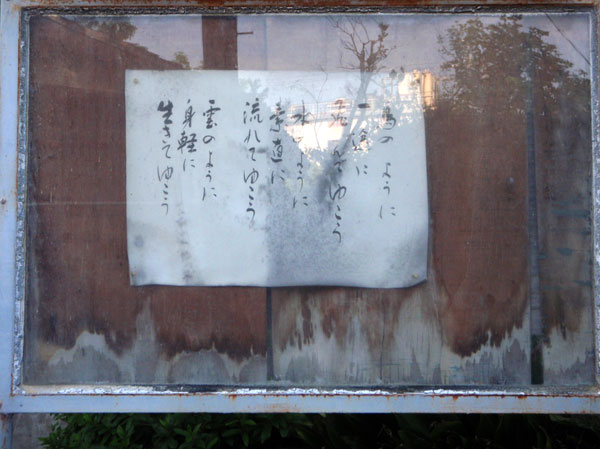 鳥のように
一途に
飛んでゆこう
水のように
素直に
流れてゆこう
雲のように
身軽に
生きてゆこう